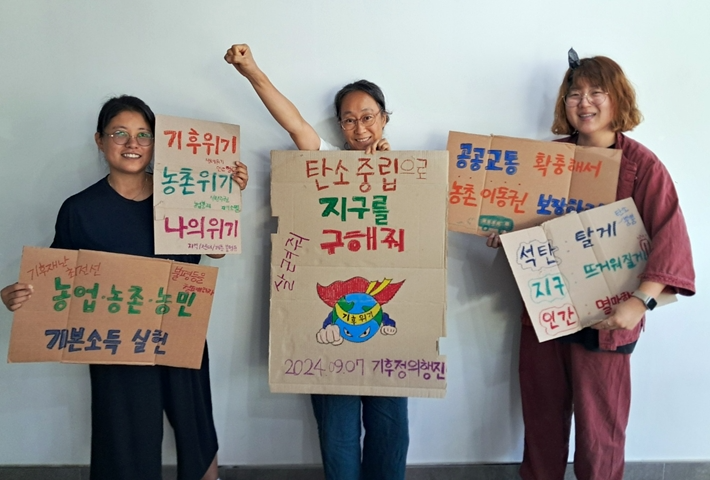 기후위기
농촌위기
나의위기
기후재난 최전선
농업·농촌·농민
기본소득 실현
탄소중립으로
지구를
구해줘
기후위기
2024.09.07 기후정의행진
공공교통 확충해서
농촌 이동권 보장하라
석탄
지구
인간
탈게
뜨거워질게
멸망